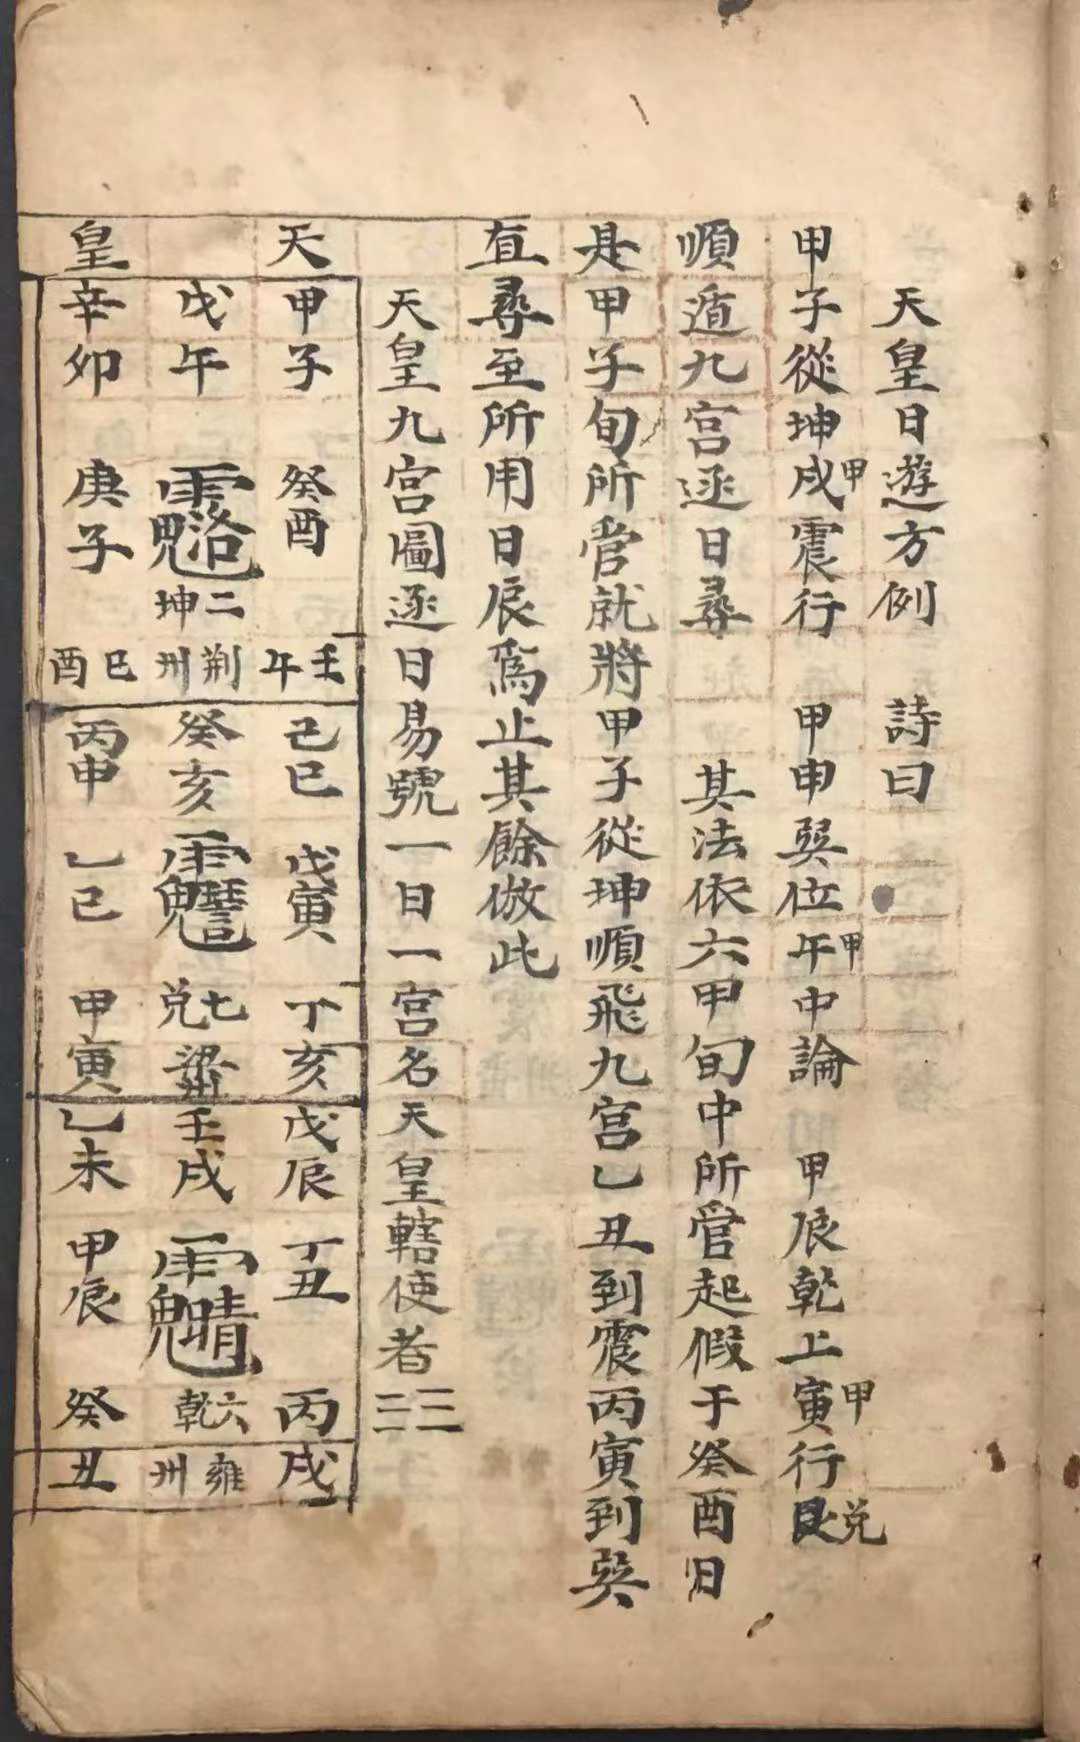 天皇日遊方例　詩曰
甲子從坤甲戌震行　甲申巽位甲午中論　甲辰乾上甲寅行兌
順遁九宮逐日尋　其法依六甲旬中所管起假于癸酉日
是甲子旬所管就將甲子從坤順飛九宮乙丑到震丙寅到巽
直尋至所用日辰爲止其餘倣此
天皇九宮圖逐日易號一日一宮名天皇轄使者
天
甲子　癸酉　壬午
戊午　二坤　荆州
皇
辛卯　庚子　巳酉
己巳　戊寅　丁亥
癸亥　七兌　梁州
丙申　乙巳　甲寅
戊辰　丁丑　丙戌
壬戌　六乾　雍州
乙未　甲辰　癸丑